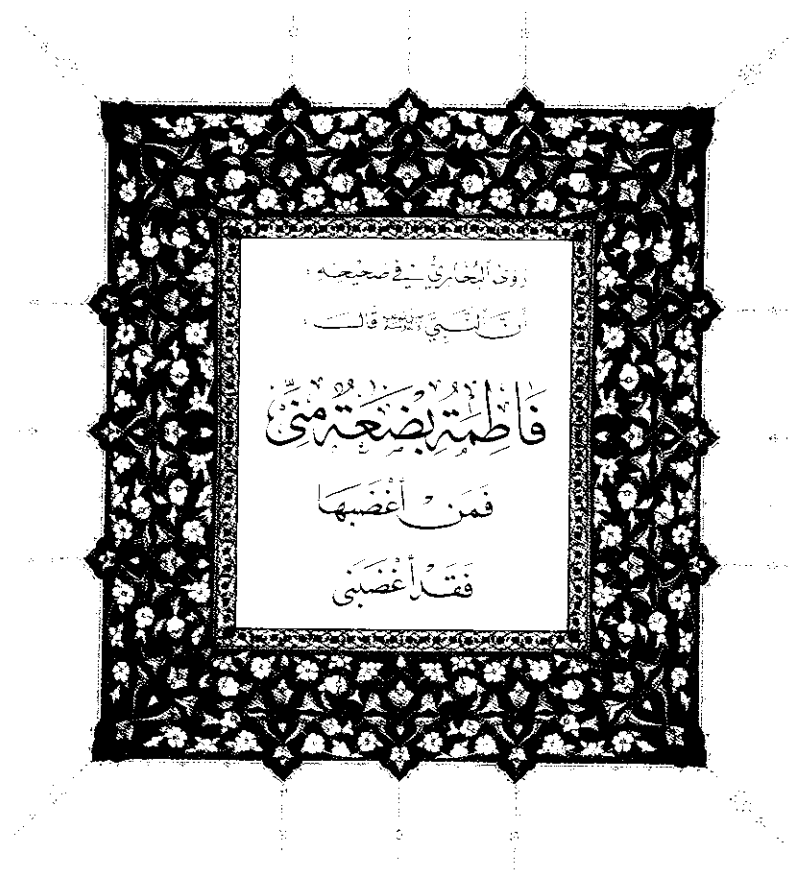 رَوَى ٱلبُخَارِيُّ فِي صَحِيحِهِ :
أَنَّ ٱلنَّبِيَّ ﷺ قَالَ :
فَاطِمَةُ بِضْعَةٌ مِنِّي
فَمَنْ أَغْضَبَهَا
فَقَدْ أَغْضَبَنِي